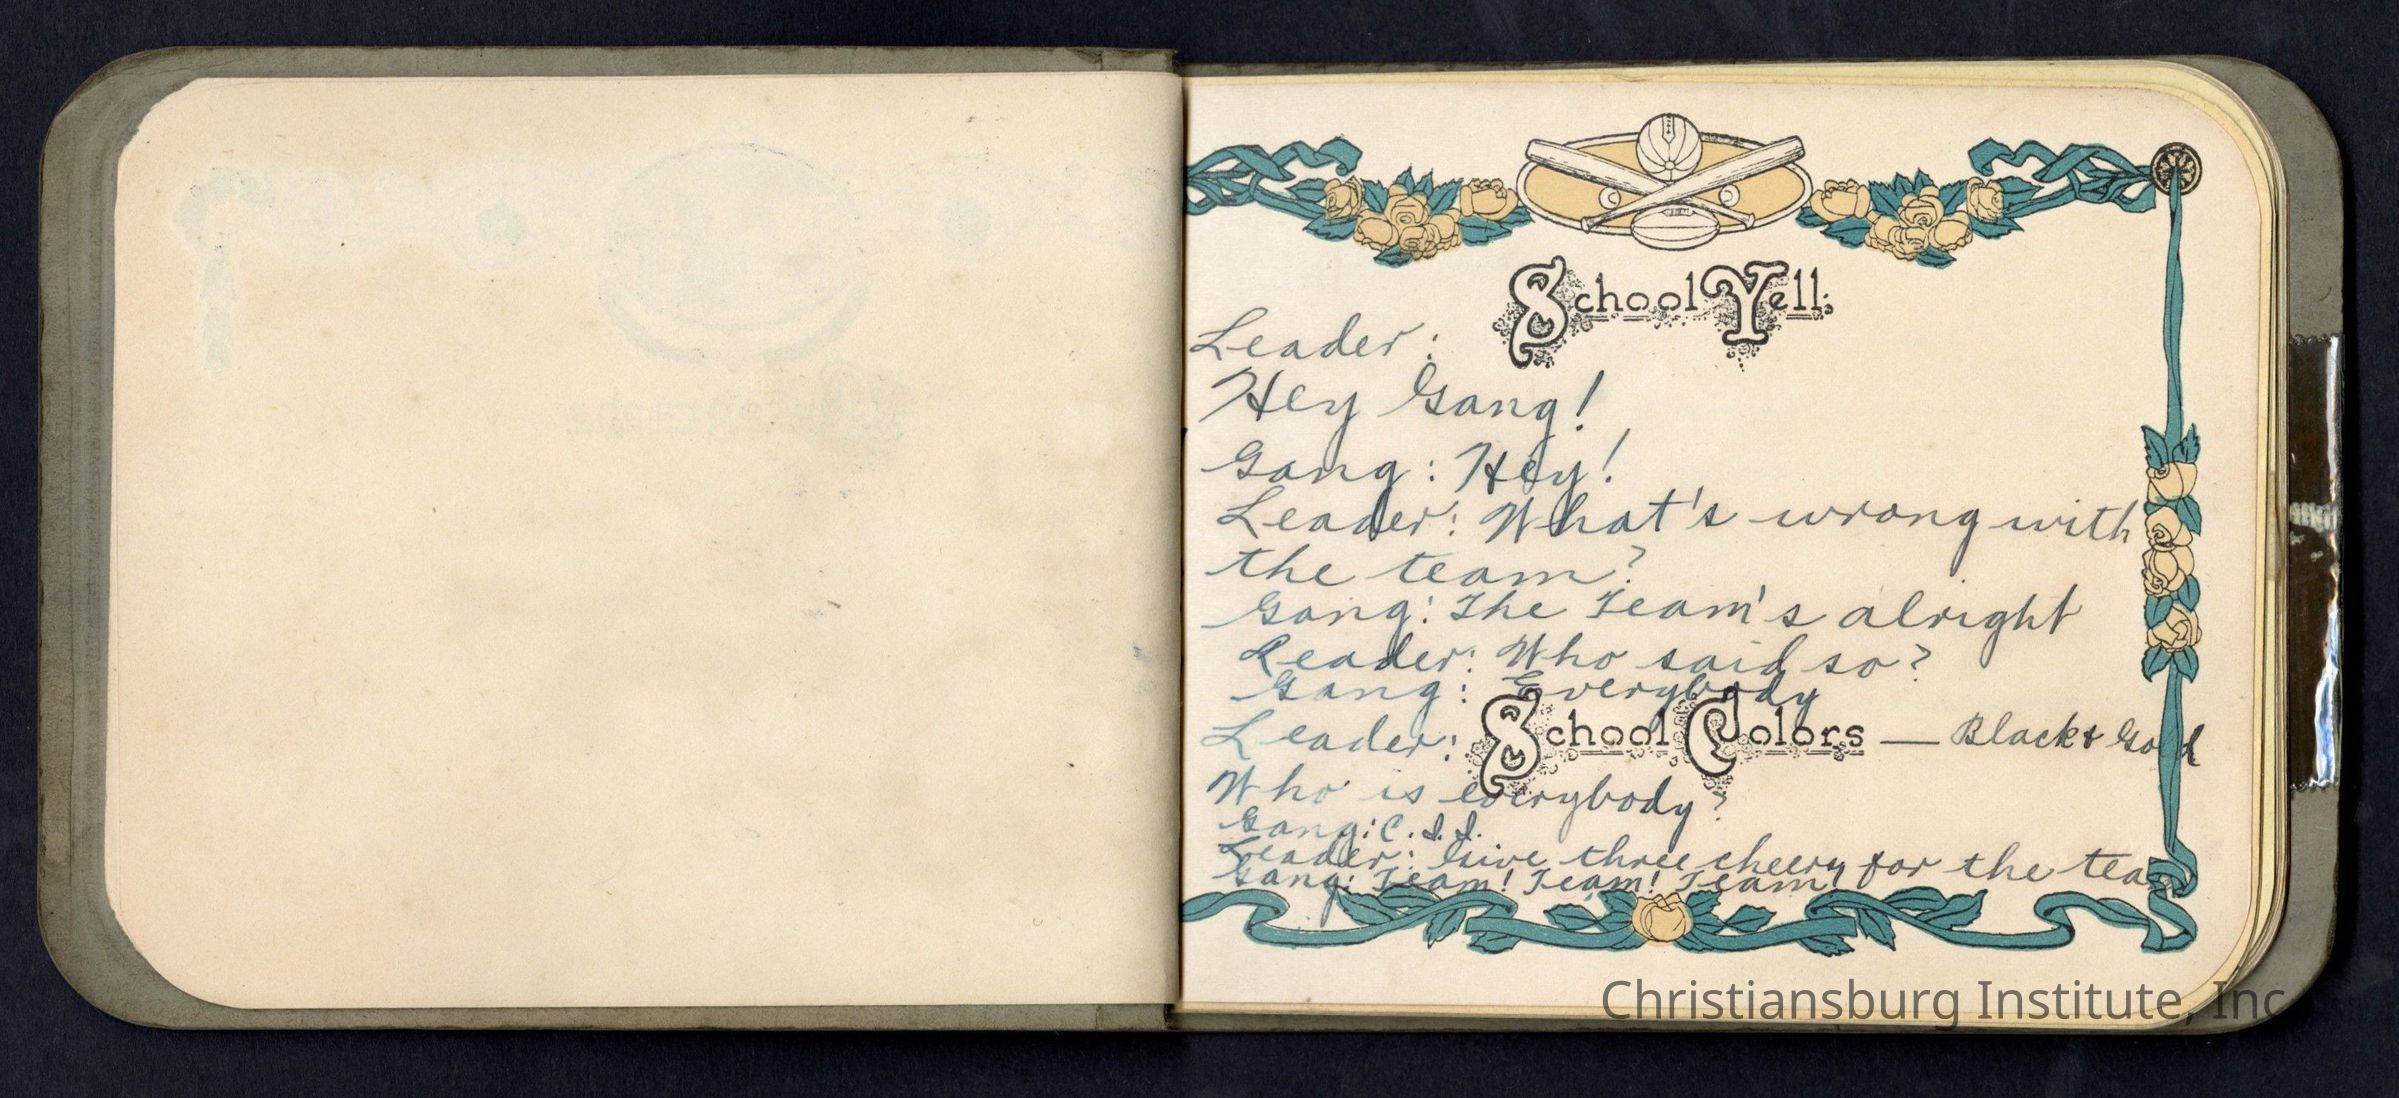 School Yell;
Leader:
Hey Gang!
Gang: Hey!
Leader: What's wrong with
the team?
Gang: The Team's alright
Leader: Who said so?
Gang: Everybody
Leader:
School Colors — Black & Gold
Who is everybody?
Gang: C. I. I.
Leader: Give three cheers for the team
Gang: Team! Team! Team!
Christiansburg Institute, Inc